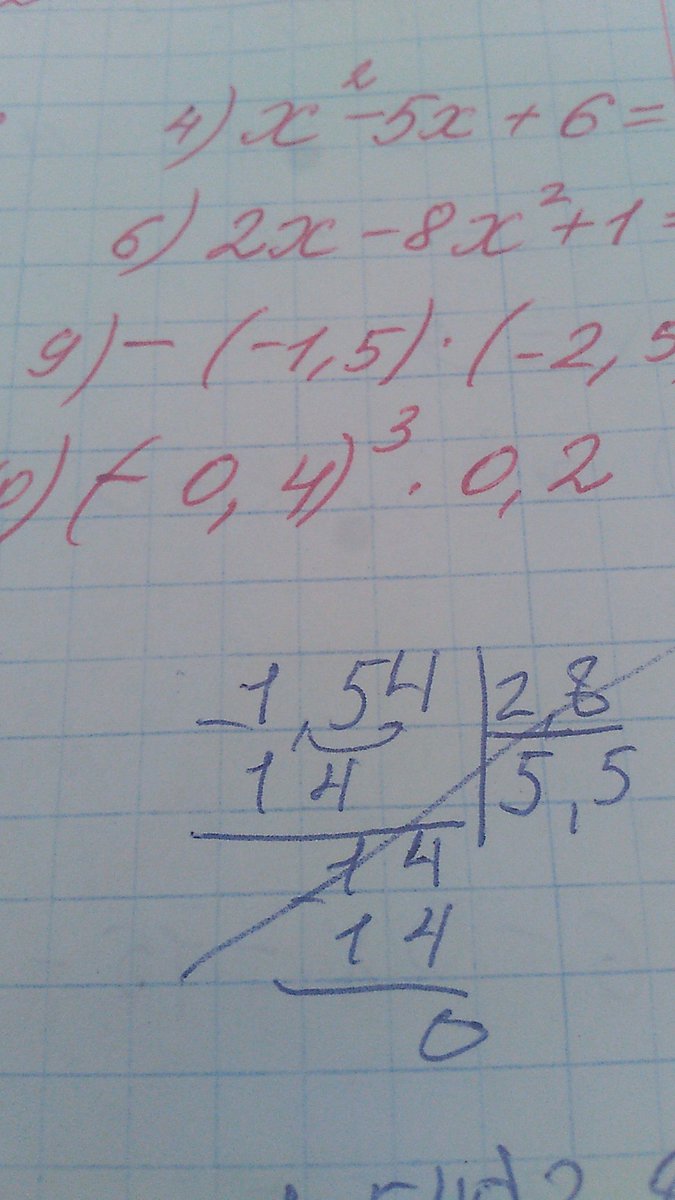 4) x² - 5x + 6 =
6) 2x - 8x² + 1 =
9) - (-1,5) · (-2,5
) (-0,4)³ · 0,2
-1,54 | 2,8
14 | 5,5
-14
14
0